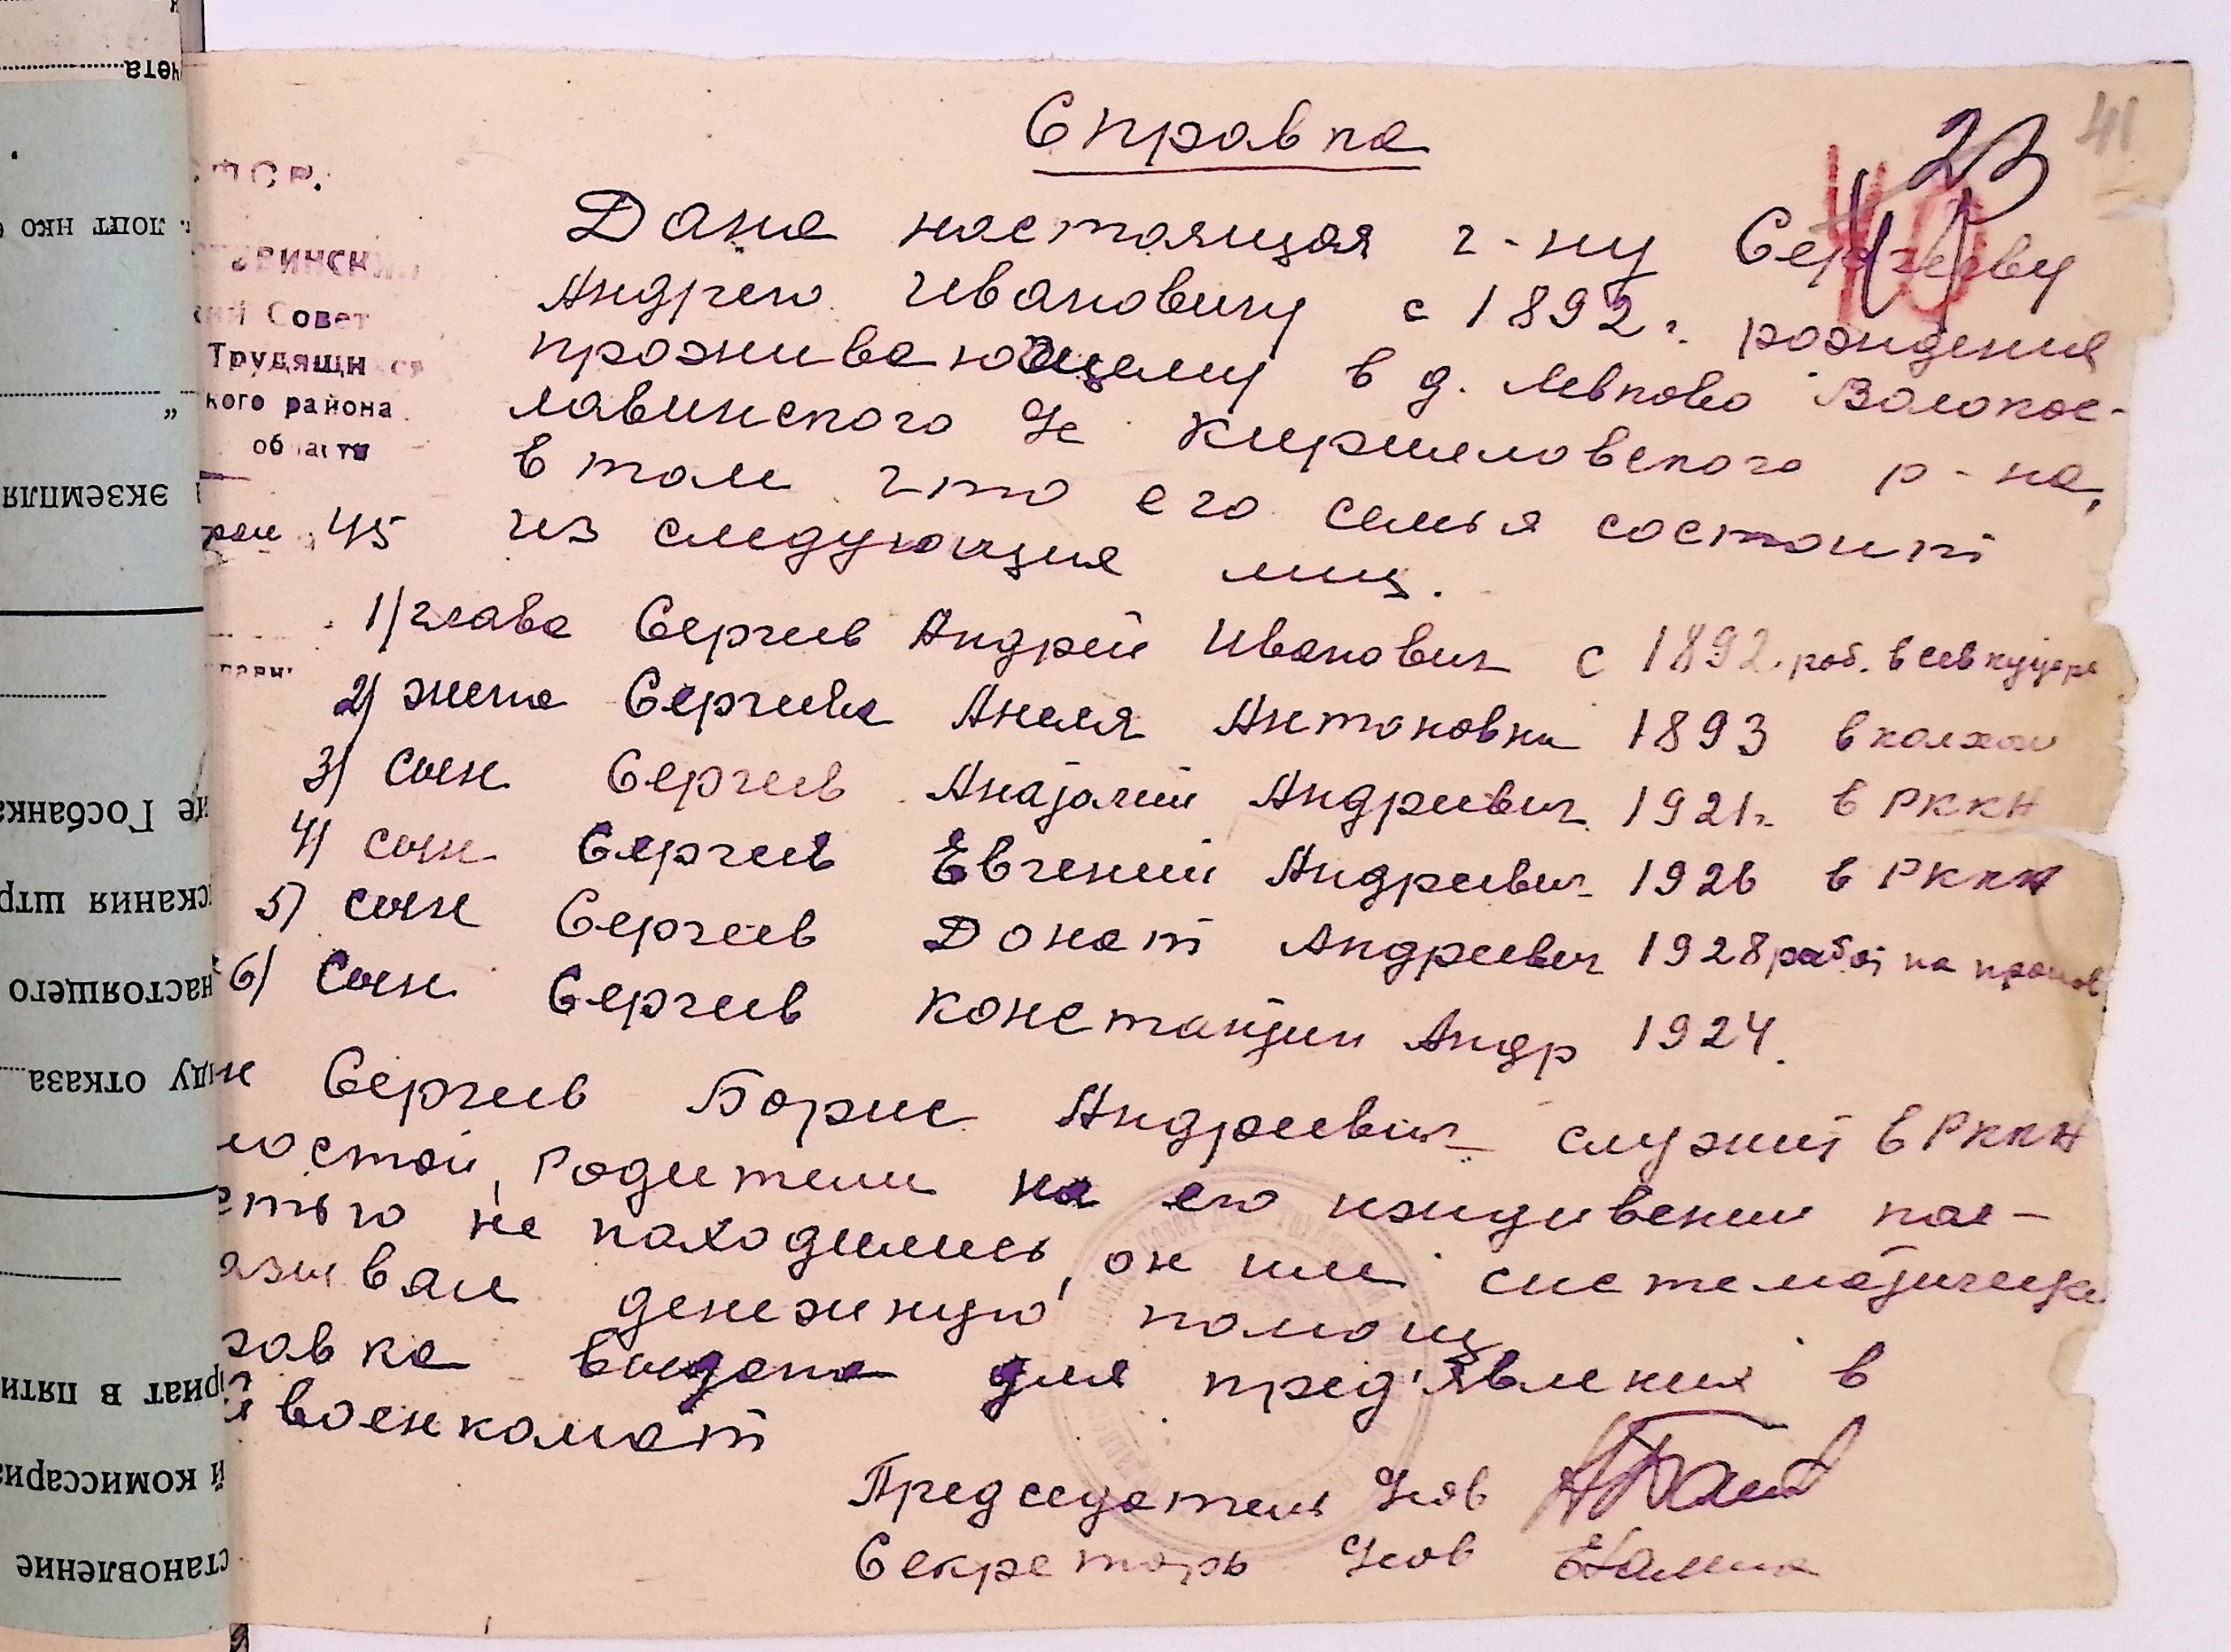 Справка
23
41
Дана настоящая г-ну Сергееву
Андрею Ивановичу с 1892 г. рождения
проживающему в д. Левково Волокос-
лавинского Кирилловского р-на,
в том что его семья состоит
45 из следующия лиц.
1) глава Сергеев Андрей Иванович с 1892. раб.
2) жена Сергеева Анеля Антоновна 1893 в колхозе
3) сын Сергеев Анатолий Андреевич 1921 г. в РККА
4) сын Сергеев Евгений Андреевич 1926 в РККА
5) сын Сергеев Донат Андреевич 1928 работ на
6) сын Сергеев Константин Андр 1924.
Сергеев Борис Андреевич служит в РККА
родители на его иждивении пол-
стью не находились, он им систематически
азывал денежную помощ
равка выдана для пред'явления в
военкомат
Председатель
Секретарь
ФСР.
Совет
Трудящихся
кого района
области
чета
экземпля
не Госбанка
скания штр
настоящего
иду отказа
риат в пяти
й комиссариа
становление